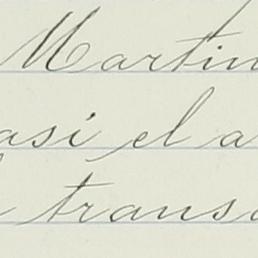 Martin
asi el a
trans